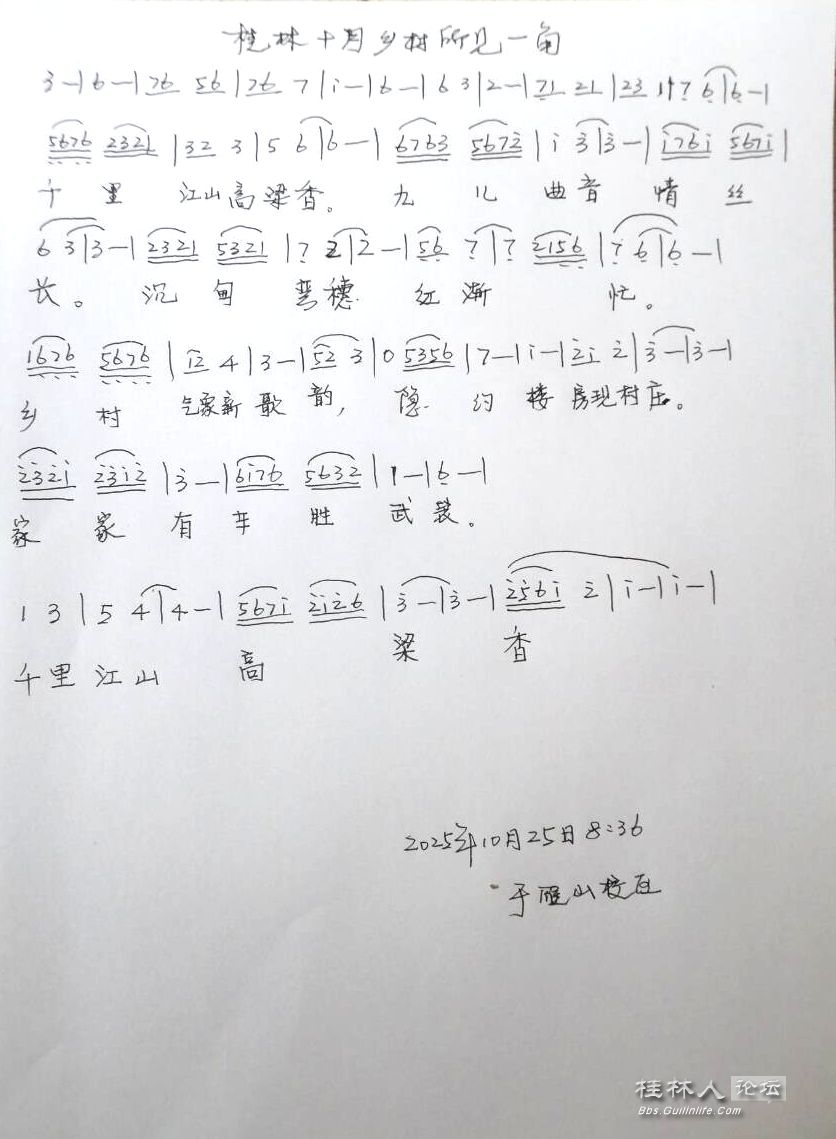 桂林十月乡村所见一角
3-|6-|76 56|76 7|i-|6-|6 3|2-|71 21|23 17 6|6-|
5676 2321|32 3|5 6|6-|6763 5672|i 3|3-|i76i 567i|
千 里 江山高梁香。九 儿 曲音 情 丝
6 3|3-|2321 5321|7 2|2-|56 7|7 2156|7 6|6-|
长。沉 甸 弯穗 红 渐 忙。
1676 5676|12 4|3-|52 3|0 5356|7-|i-|2i 2|3-|3-|
乡 村 气象新 歌 韵,隐 约 楼房现村庄。
232i 23i2|3-|6i76 5632|1-|6-|
家 家 有 车 胜 武装。
1 3|5 4|4-|567i 2i26|3-|3-|256i 2|i-|i-|
千里江山 高 梁 香
2025年10月25日8:36
于雁山校区
桂林人论坛
Bbs.Guilinlife.Com